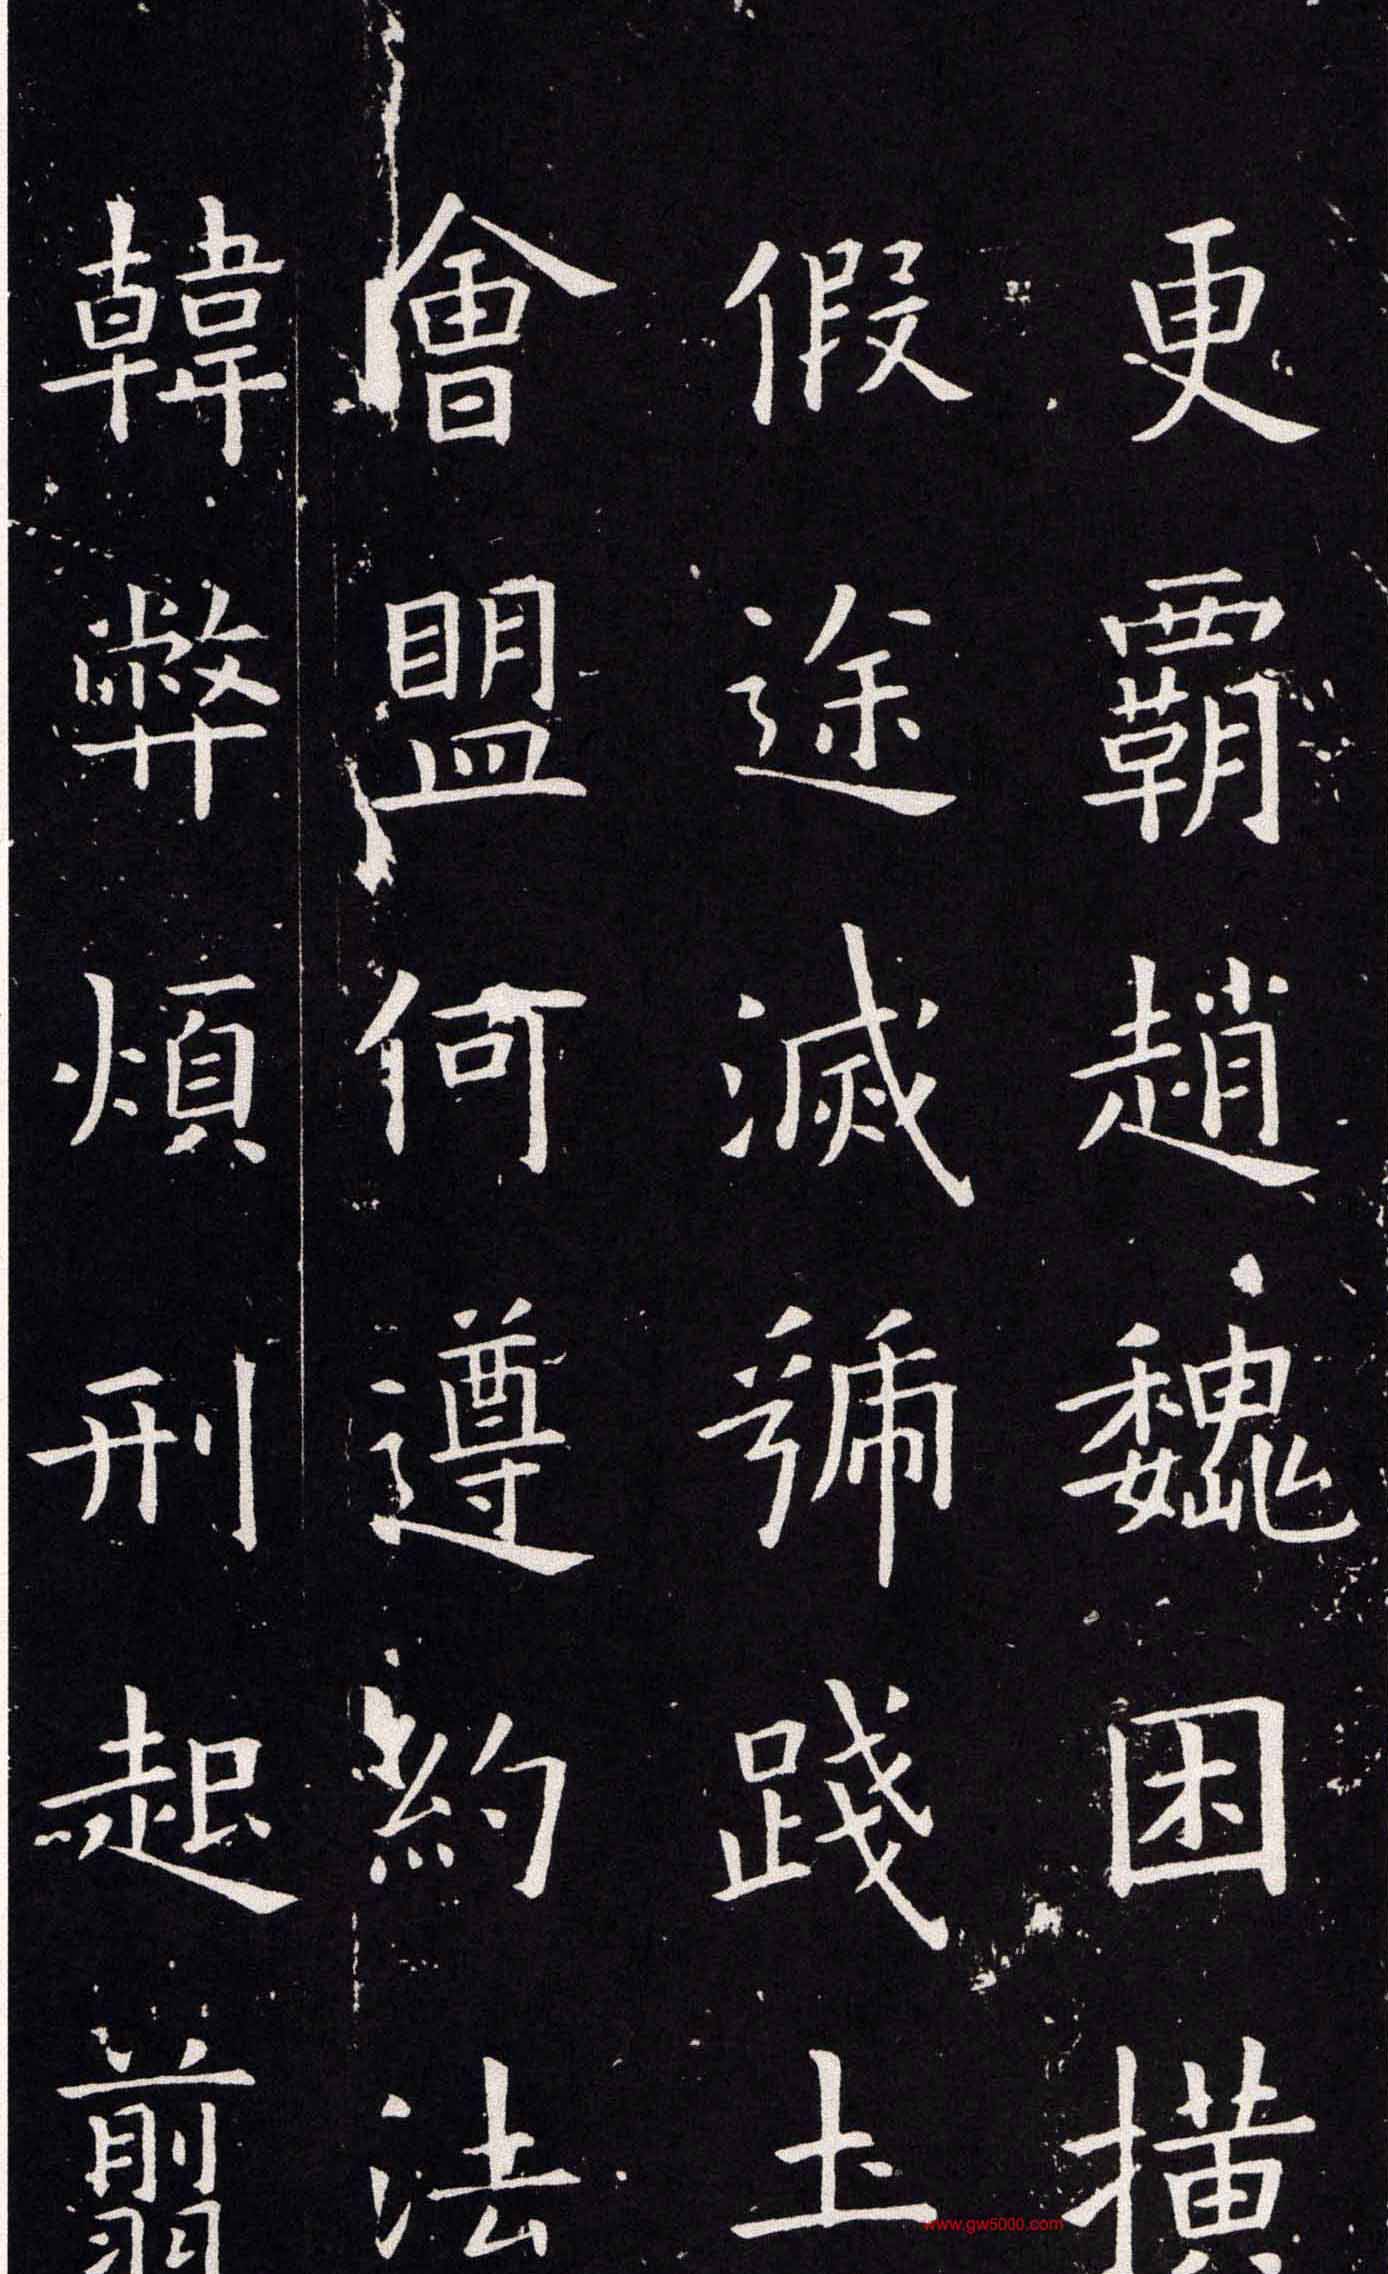 更霸趙魏困横
假途滅虢踐土
會盟何遵約法
韓弊煩刑起翦
www.gw5000.com